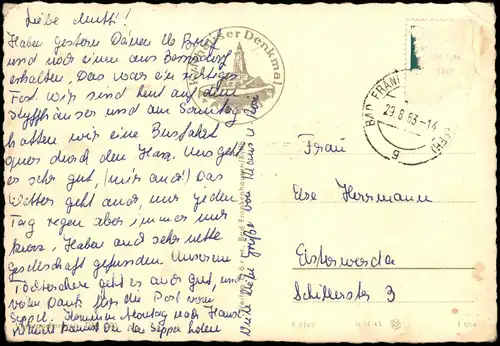 Liebe Mutti!
Haben gestern Deinen lb Brief
und noch einen aus
erhalten. Das war ein richtiges
Fest. Wir sind heut auf dem
Kyffhäuser und am Sonntag
hatten wir eine Busfahrt
quer durch den Harz. Uns geht
es sehr gut, (mir auch!) Das
Wetter geht auch, nur jeden
Tag regen aber immer nur
kurz. Haben auch sehr nette
Gesellschaft gefunden. Unserem
Töchterchen geht es auch gut, und
vielen Dank für die Post vom
Seppel. Kommen Montag nach Hause
Seppel holen
Viele liebe Grüße von
Kyffhäuser Denkmal
BAD FRANKENHAUSEN (KYFFH)
29.8.63-14
Frau
Else Herrmann
Elsterwerda
Schillerstr. 3